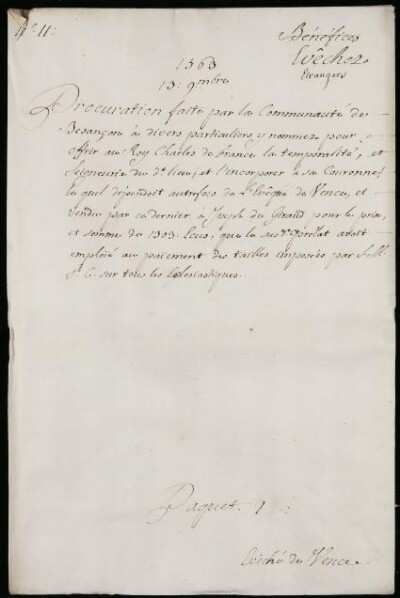 N.° 11:
Bénéfices
Evêchez
Etrangers
1563
13: 9mbre
Procuration faite par la Communauté de
Besançon à divers particuliers y nommez pour
offrir au Roy Charles de France la temporalité, et
Seigneurie du d.t lieu, et l'incorporer à sa Couronne,
la quel dépendoit autrefois du S.r Evêque de Vence, et
vendue par ce dernier à Joseph du Giraud pour le prix,
et somme de 1303: Ecus, que le sus.t Prélat avoit
emploié au paiement des tailles imposées par
sur tous les Eclesiastiques.
Paquet 1:
Evêché de Vence